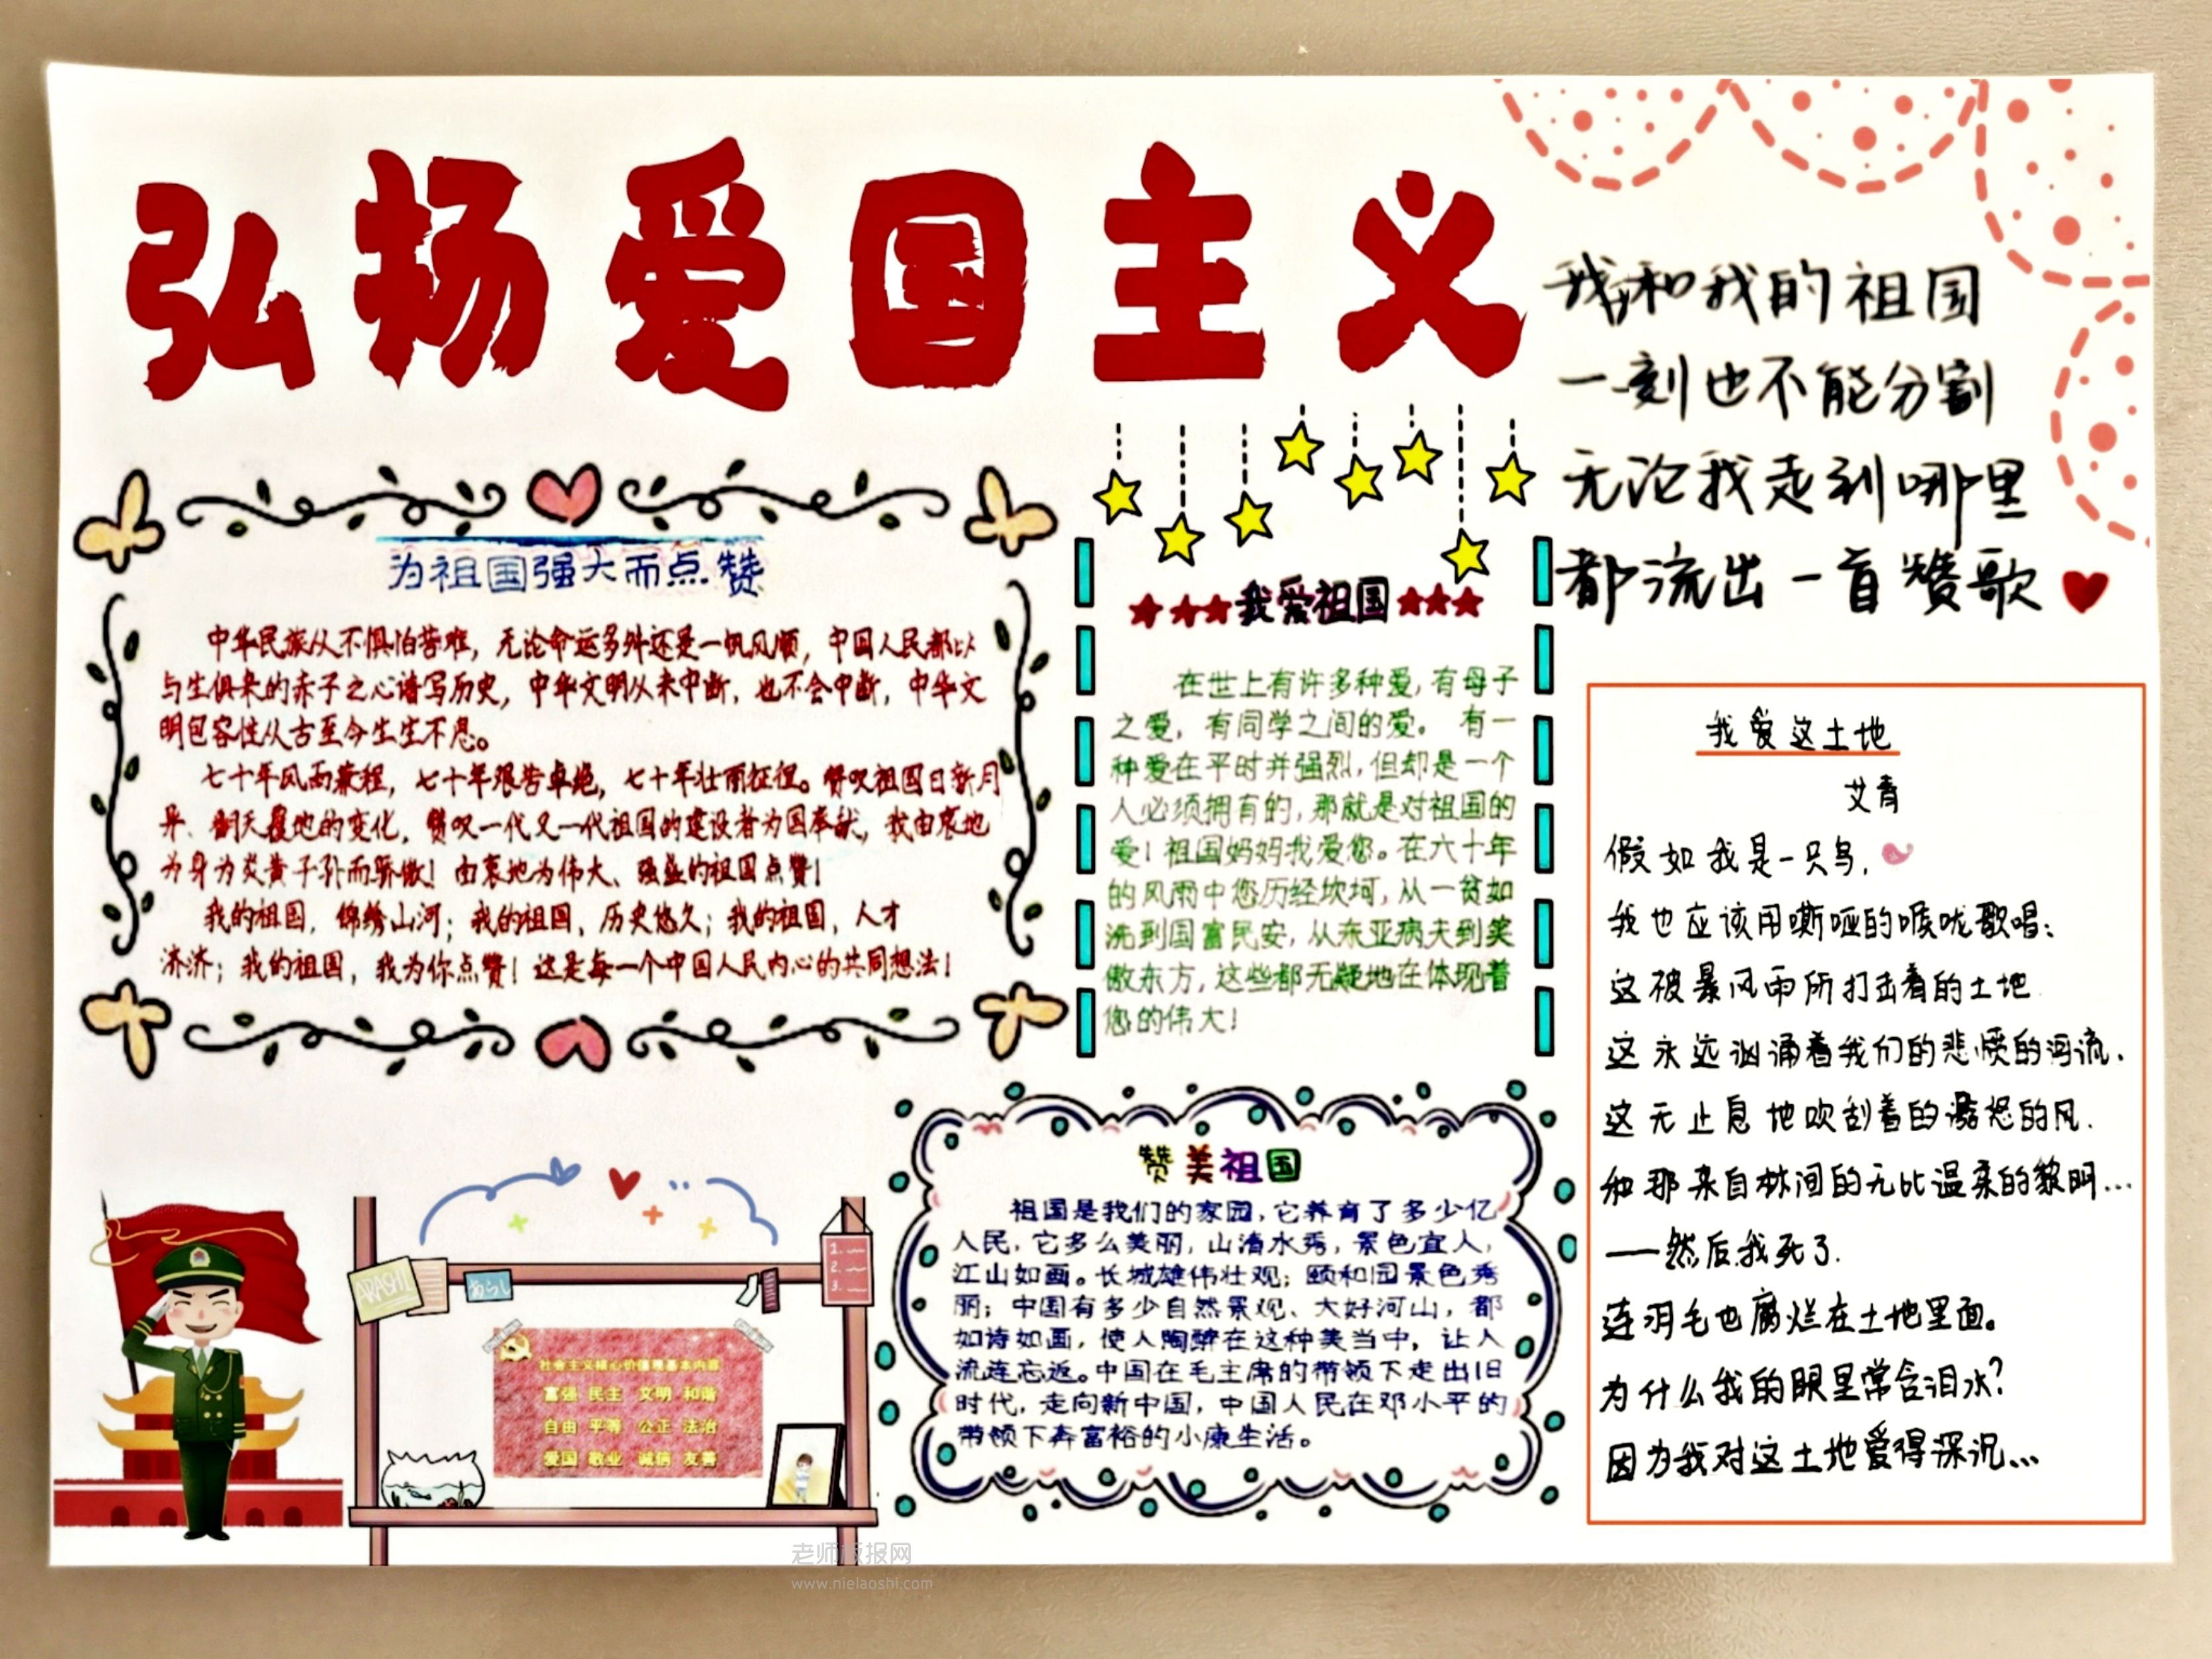 弘扬爱国主义
我和我的祖国
一刻也不能分割
无论我走到哪里
都流出一首赞歌
为祖国强大而点赞
中华民族从不惧怕苦难，无论命运多舛还是一帆风顺，中国人民都以
与生俱来的赤子之心谱写历史，中华文明从未中断，也不会中断，中华文
明包容性从古至今生生不息。
七十年风雨兼程，七十年艰苦卓绝，七十年壮丽征程。赞叹祖国日新月
异、翻天覆地的变化，赞叹一代又一代祖国的建设者为国奉献，我由衷地
为身为炎黄子孙而骄傲！由衷地为伟大、强盛的祖国点赞！
我的祖国，锦绣山河；我的祖国，历史悠久；我的祖国，人才
济济；我的祖国，我为你点赞！这是每一个中国人民内心的共同想法！
我爱祖国
在世上有许多种爱，有母子
之爱，有同学之间的爱。有一
种爱在平时并强烈，但却是一个
人必须拥有的，那就是对祖国的
爱！祖国妈妈我爱您。在六十年
的风雨中您历经坎坷，从一贫如
洗到国富民安，从东亚病夫到笑
傲东方，这些都无疑地在体现着
您的伟大！
我爱这土地
艾青
假如我是一只鸟，
我也应该用嘶哑的喉咙歌唱：
这被暴风雨所打击着的土地
这永远汹涌着我们的悲愤的河流，
这无止息地吹刮着的激怒的风，
和那来自林间的无比温柔的黎明...
——然后我死了，
连羽毛也腐烂在土地里面。
为什么我的眼里常含泪水？
因为我对这土地爱得深沉...
赞美祖国
祖国是我们的家园，它养育了多少亿
人民，它多么美丽，山清水秀，景色宜人，
江山如画。长城雄伟壮观；颐和园景色秀
丽；中国有多少自然景观、大好河山，都
如诗如画，使人陶醉在这种美当中，让人
流连忘返。中国在毛主席的带领下走出旧
时代，走向新中国，中国人民在邓小平的
带领下奔富裕的小康生活。
ARASHI
あらし
1.
2.
3.
社会主义核心价值观基本内容
富强 民主 文明 和谐
自由 平等 公正 法治
爱国 敬业 诚信 友善
老师板报网
www.nielaoshi.com